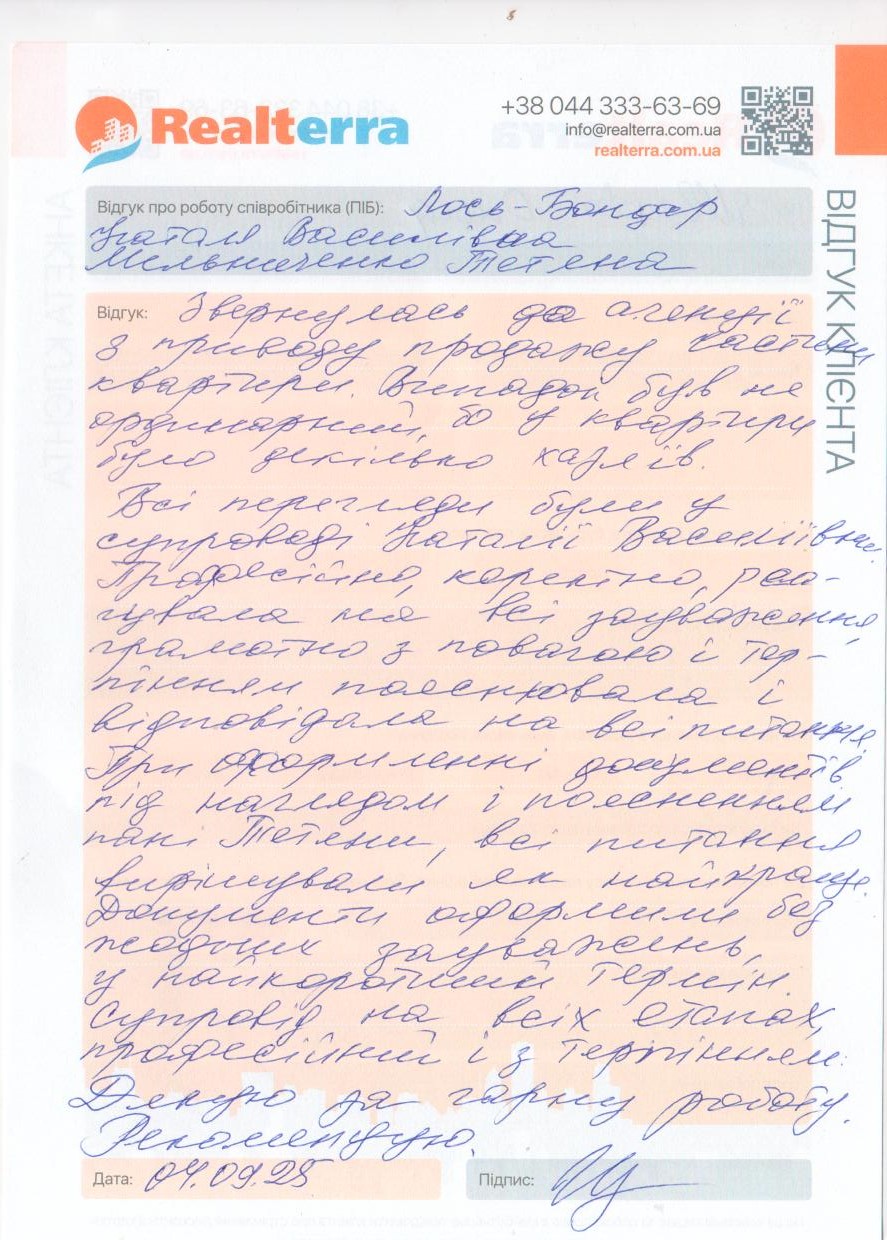 +38 044 333-63-69
Realterra
info@realterra.com.ua
realterra.com.ua
Відгук про роботу співробітника (ПІБ): Лось-Бондар
Наталя Василівна
Мельниченко Тетяна
ВІДГУК КЛІЄНТА
Відгук: Звернулась до агенції
з приводу продажу частини
квартири. Випадок був не
ординарний, бо у квартири
було декілька хазяїв.
Всі перегляди були у
супроводі Наталії Василівни.
Професійно, коректно, реа-
гувала на всі зауваження,
грамотно з повагою і тер-
пінням пояснювала і
відповідала на всі питання.
При оформленні документів
під наглядом і поясненням
пані Тетяни, всі питання
вирішували як найкраще.
Документи оформили без
жодних зауважень,
у найкоротший термін.
Супровід на всіх етапах,
професійний і з терпінням.
Дякую за гарну роботу.
Рекомендую.
Дата: 04.09.25
Підпис: